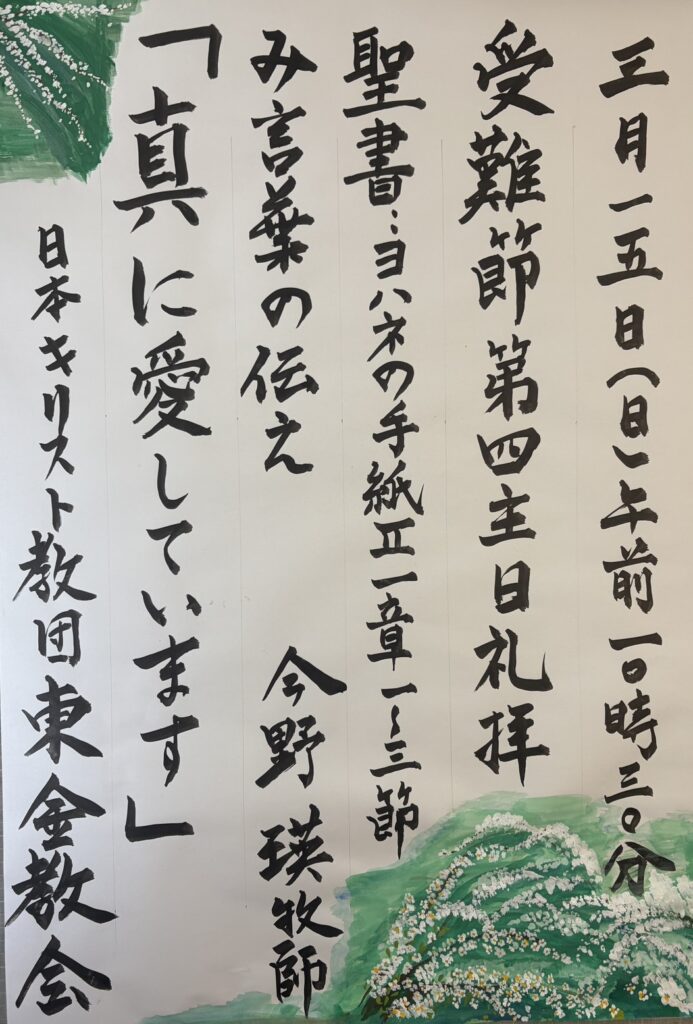 三月一五日(日)午前一〇時三〇分
受難節第四主日礼拝
聖書:ヨハネの手紙Ⅱ一章一~三節
み言葉の伝え 今野 瑛牧師
「真に愛しています」
日本キリスト教団東金教会